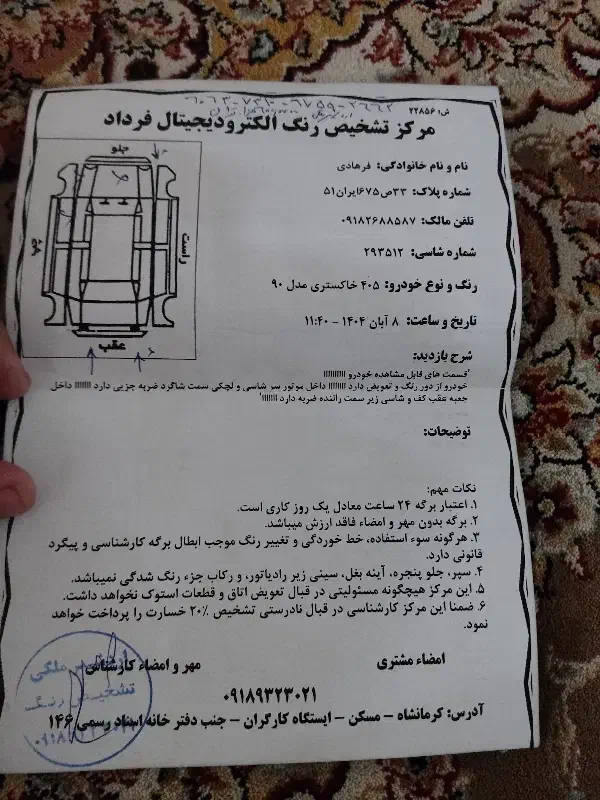 ش: ۲۲۸۵۶
مرکز تشخیص رنگ الکترودیجیتال فرداد
نام و نام خانوادگی: فرهادی
شماره پلاک: ۳۳ص۶۷۵ایران۵۱
تلفن مالک: ۰۹۱۸۲۶۸۸۵۸۷
شماره شاسی: ۲۹۳۵۱۲
رنگ و نوع خودرو: ۴۰۵ خاکستری مدل ۹۰
تاریخ و ساعت: ۸ آبان ۱۴۰۴ - ۱۱:۴۰
جلو
راست
چپ
عقب
شرح بازدید:
قسمت های قابل مشاهده خودرو
خودرو از دور رنگ و تعویض دارد داخل موتور سر شاسی و لچکی سمت شاگرد ضربه جزیی دارد داخل
جعبه عقب کف و شاسی زیر سمت راننده ضربه دارد
توضیحات:
نکات مهم:
۱. اعتبار برگه ۲۴ ساعت معادل یک روز کاری است.
۲. برگه بدون مهر و امضاء فاقد ارزش میباشد.
۳. هرگونه سوء استفاده، خط خوردگی و تغییر رنگ موجب ابطال برگه کارشناسی و پیگرد
قانونی دارد.
۴. سپر، جلو پنجره، آینه بغل، سینی زیر رادیاتور، و رکاب جزء رنگ شدگی نمیباشد.
۵. این مرکز هیچگونه مسئولیتی در قبال تعویض اتاق و قطعات استوک نخواهد داشت.
۶. ضمنا این مرکز کارشناسی در قبال نادرستی تشخیص ۲۰٪ خسارت را پرداخت خواهد
نمود.
امضاء مشتری
مهر و امضاء کارشناس:
۰۹۱۸۹۳۲۳۰۲۱
آدرس: کرمانشاه - مسکن - ایستگاه کارگران - جنب دفتر خانه اسناد رسمی ۱۴۶
تشخیص رنگ